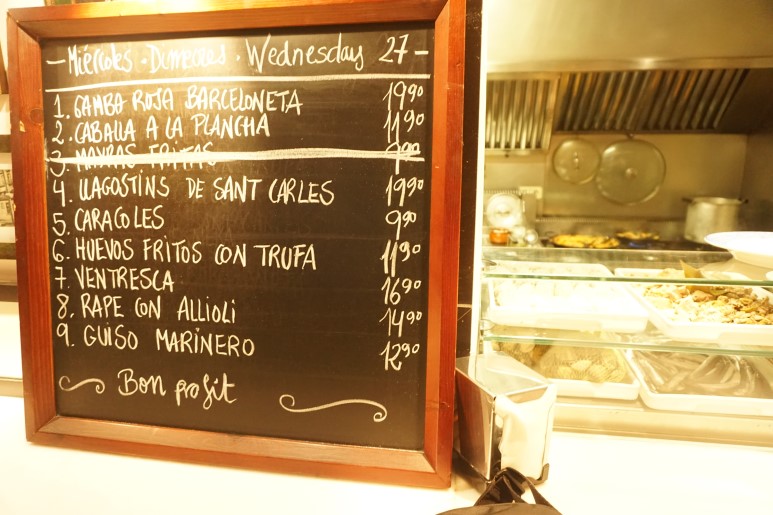 - Miércoles . Dimecres . Wednesday 27 -
1. GAMBA ROJA BARCELONETA 19'90
2. CABALLA A LA PLANCHA 11'90
3. FRITAS 9'90
4. LLAGOSTINS DE SANT CARLES 19'90
5. CARACOLES 9'90
6. HUEVOS FRITOS CON TRUFA 11'90
7. VENTRESCA 16'90
8. RAPE CON ALLIOLI 14'90
9. GUISO MARINERO 12'90
Bon profit